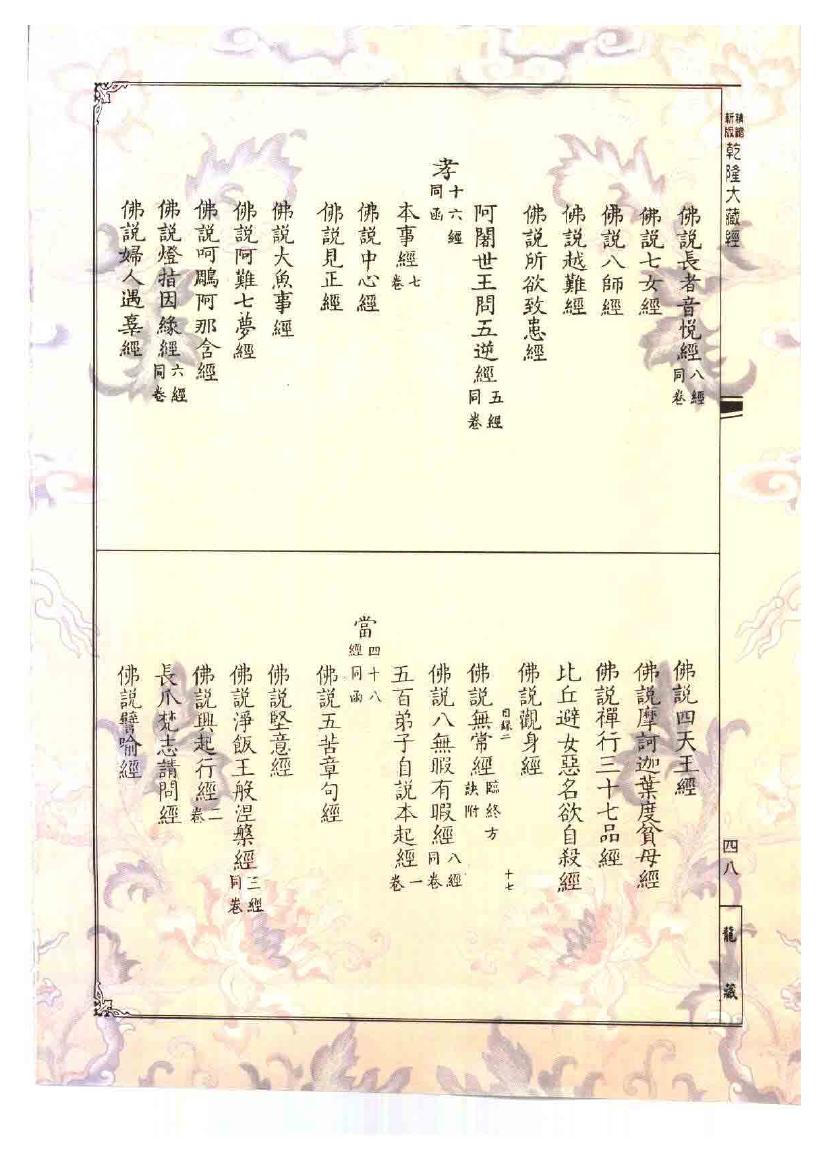 精繪新版乾隆大藏經
佛說長者音悅經八經同卷
佛說七女經
佛說八師經
佛說越難經
佛說所欲致患經
阿闍世王問五逆經五經同卷
孝十六經同函
本事經七卷
佛說中心經
佛說見正經
佛說大魚事經
佛說阿難七夢經
佛說呵鵰阿那含經
佛說燈指因緣經六經同卷
佛說婦人遇辜經
佛說四天王經
佛說摩訶迦葉度貧母經
佛說禪行三十七品經
比丘避女惡名欲自殺經
佛說觀身經
目錄二 十七
佛說無常經臨終方訣附
佛說八無暇有暇經八經同卷
五百弟子自說本起經一卷
當四十八經同函
佛說五苦章句經
佛說堅意經
佛說淨飯王般涅槃經三經同卷
佛說興起行經二卷
長爪梵志請問經
佛說譬喻經
四八
龍藏